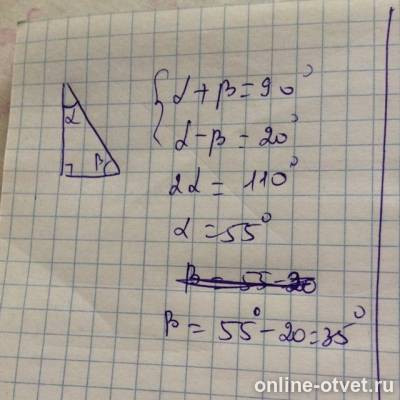 α
β
α + β = 90°
α - β = 20°
2α = 110°
α = 55°
β = 55 - 20
β = 55° - 20 = 35°
online-otvet.ru